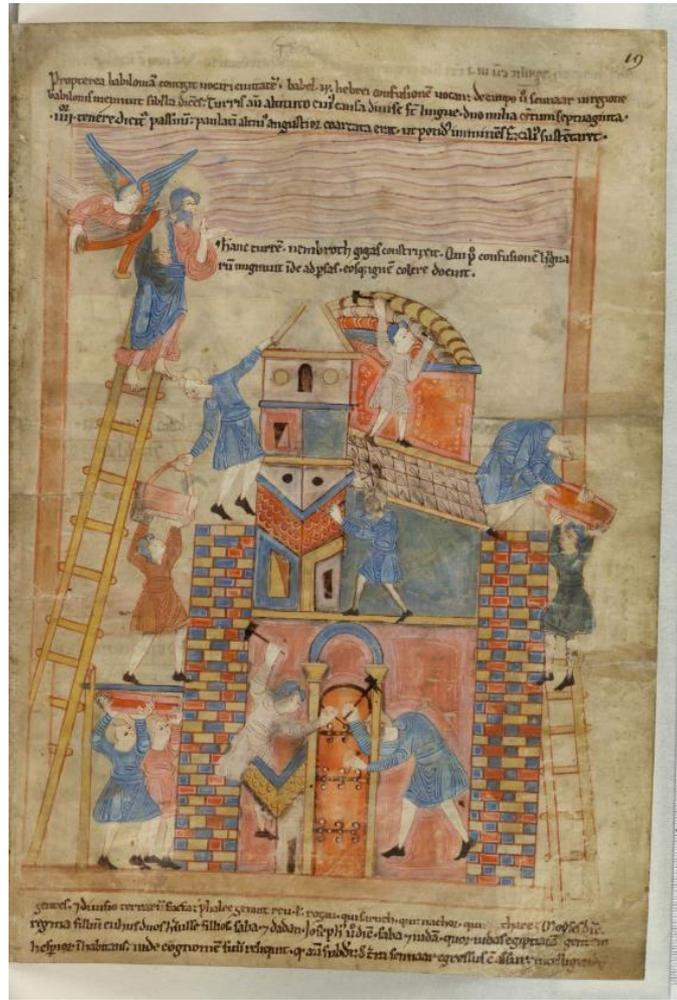 19
Propterea babiloniā contigit uocari ciuitatē. babel. n̄. hebrei confusionē uocant. de campo ū sennaar in regione
babilonis meminit sibilla dicēs. Turris aū altitudo cui' causa diuise st̄ lingue. duo milia centum septuaginta.
.iiii.or tenere dicit' passuū. paulatī altius angustior coartata erat. ut pond' imminēs facili' sustentaret.
hanc turrē. nembroth gigas construxit. Qui p' confusionē lingua
rū migrauit īde ad p̄sas. eosq; ignē colere docuit.
gentes. ⁊ diuisio terrarū facta. phalec genuit reu. l'. ragau. qui saruch. qui nachor. qui thare. Moyses dīc.
regma filiū cuhus duos huisse filios. saba ⁊ dadan. Joseph' ū dīc. saba ⁊ iudā. quor' iudas egiptiacā gentem
hespior' īhabitans. iude cognomē suis reliquit. q aū subdit' de t'ra sennaar egressus ē assur.